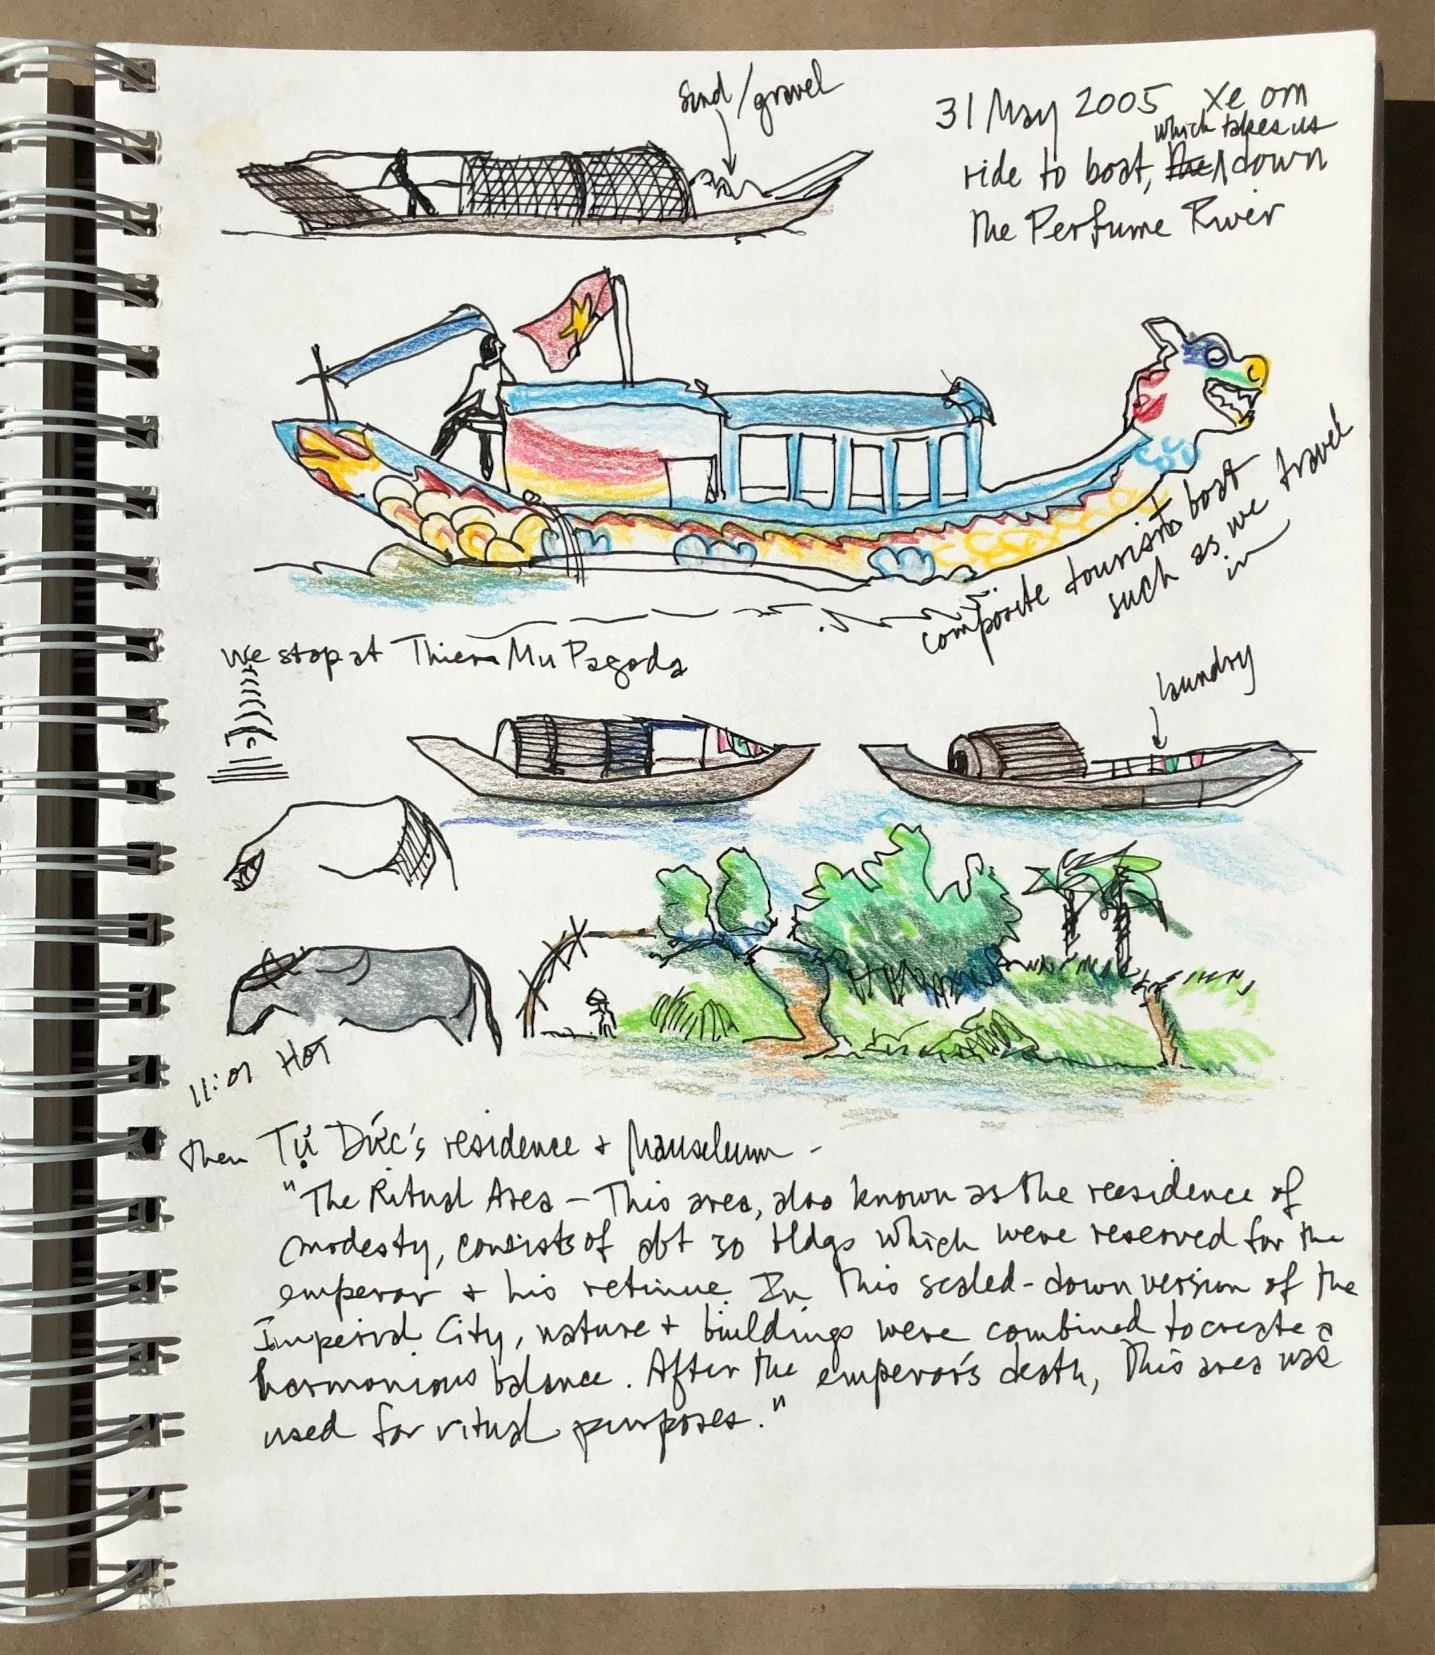 sand/gravel
31 May 2005 xe om
which takes us
ride to boat, the down
the Perfume River
composite tourist boat
such as we travel
in
We stop at Thien Mu Pagoda
laundry
HOT
then Tự Đức's residence + Mauseleum -
"The Ritual Area - This area, also known as the reesidence of
modesty, consists of abt 30 bldgs which were reserved for the
emperor + his retinue. In this scaled-down version of the
Imperial City, nature + buildings were combined to create a
harmonious balance. After the emperor's death, this area was
used for ritual purposes."